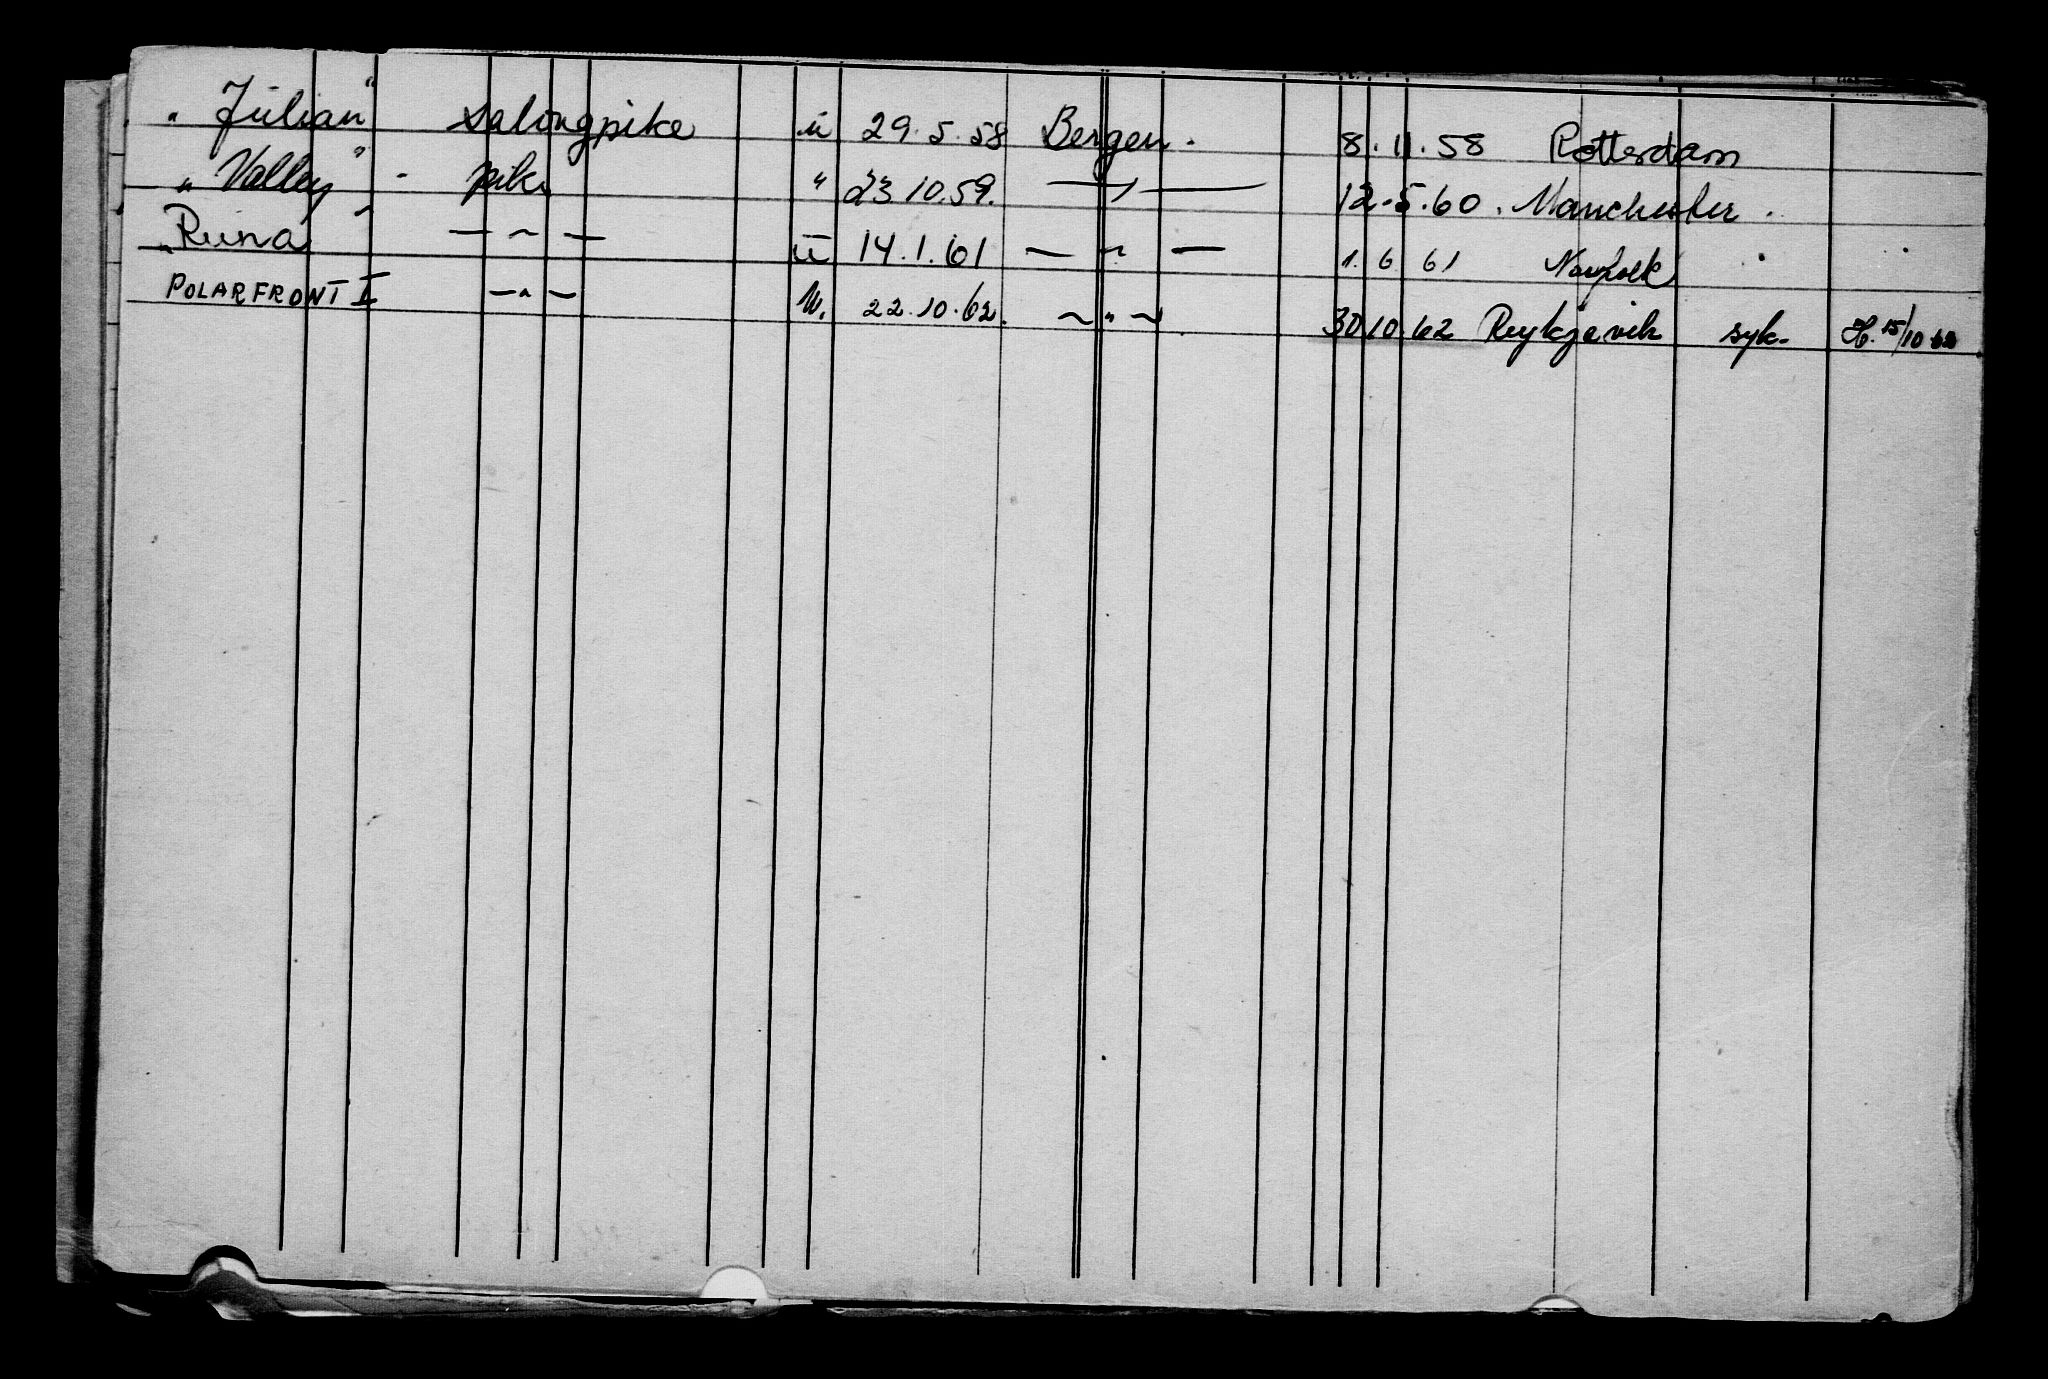 "Julian" salongpike u 29.5.58 Bergen. 8.11.58 Rotterdam
"Valley" - pike " 23.10.59. —"— 12.5.60. Manchester.
"Runa" — " — u 14.1.61 — " — 1. 6 61 Norfolk " "
POLARFRONT I — " — U. 22.10.62. — " — 30.10.62 Reykjavik syk. H. 15/10 62